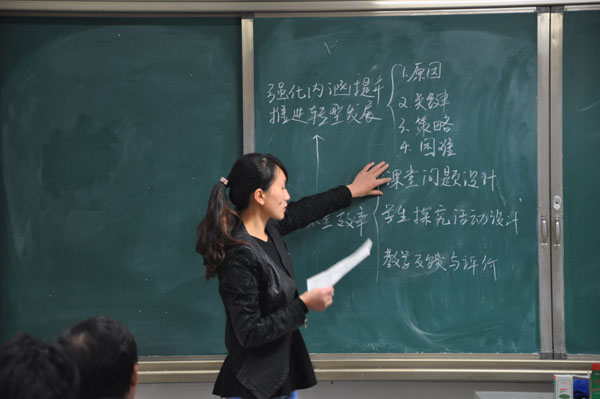 强化内涵提升
推进转型发展
1.原因
2.关键
3.策略
4.困难
课堂问题设计
堂效率
学生探究活动设计
教学反馈与评价